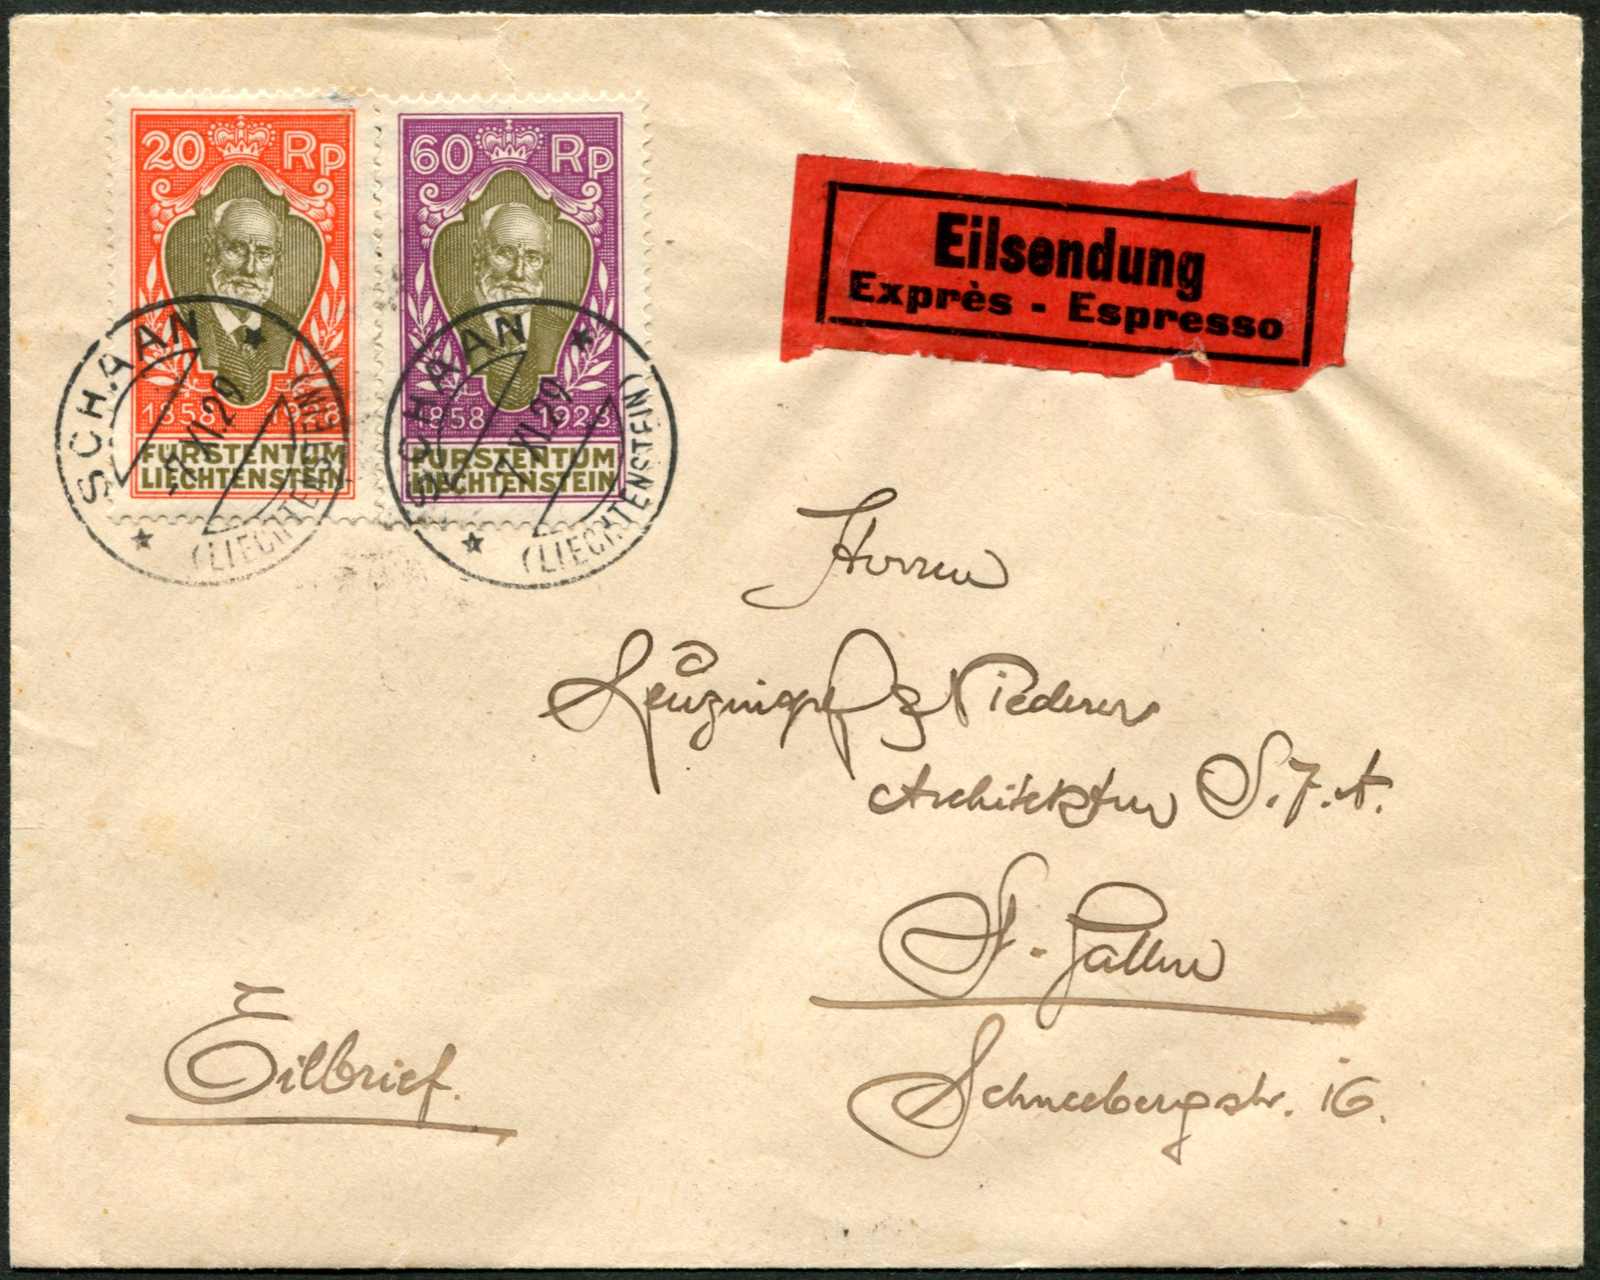 20 Rp
1858 1928
FÜRSTENTUM
LIECHTENSTEIN
60 Rp
1858 1928
FÜRSTENTUM
LIECHTENSTEIN
SCHAAN
-7.XI.29
(LIECHTENSTEIN)
SCHAAN
-7.XI.29
(LIECHTENSTEIN)
Eilsendung
Exprès - Espresso
Herren
& Niederer
Architekten S.I.A.
St. Gallen
Schneebergstr. 16.
Eilbrief.